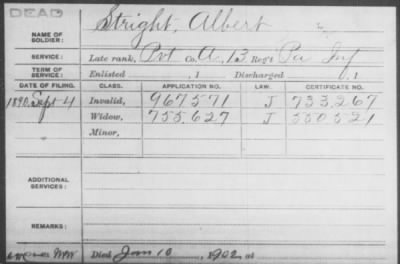 DEAD
NAME OF SOLDIER: Stright, Albert
SERVICE: Late rank, Pvt Co. A, 13 Reg't Pa Inf
TERM OF SERVICE: Enlisted , 1 Discharged , 1
DATE OF FILING. CLASS. APPLICATION NO. LAW. CERTIFICATE NO.
1890 Sept 4 Invalid, 967571 J 733,267
Widow, 755,627 J 550521
Minor,
ADDITIONAL SERVICES:
REMARKS:
Died Jan 10, 1902, at